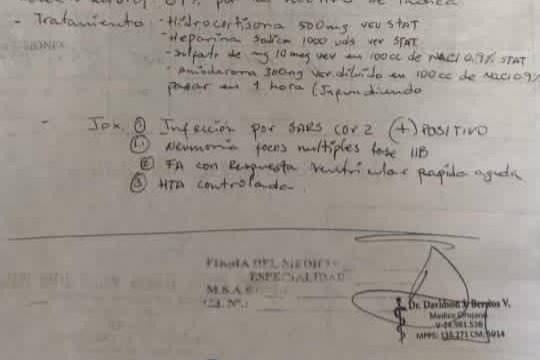 - Tratamiento: - Hidrocortisona 500mg vev STAT
- Heparina Sodica 1000 uds vev STAT
- Sulfato de mg 10 meq vev en 100cc de NaCl 0.9% STAT
- Amiodarona 300mg vev diluido en 100cc de NaCl 0.9%
pasar en 1 hora (Infundiendo
- Jdx. ① Infección por SARS Cov 2 (+) POSITIVO
Neumonía focos multiples fase IIB
② FA con respuesta ventricular rapida aguda
③ HTA controlada.
FIRMA DEL MEDICO
ESPECIALIDAD
M.S.A.S
C.I. Nº.:
Dr. Davidson J. Berrios V.
Médico Cirujano